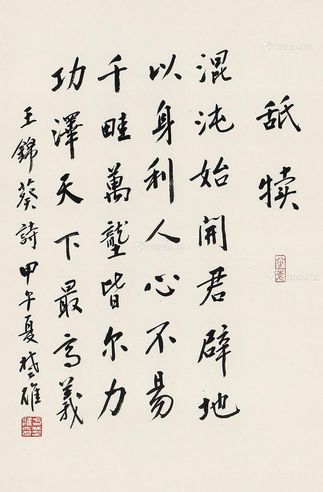 舐犊
混沌始开君辟地
以身利人心不易
千畦萬壟皆尔力
功澤天下最高義
王錦葵詩甲午夏楚雄